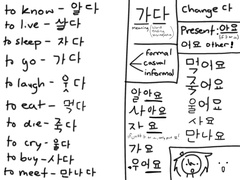 to know - 알다
to live - 살다
to sleep - 자다
to go - 가다
to laugh - 웃다
to eat - 먹다
to die - 죽다
to cry - 울다
to buy - 사다
to meet - 만나다
가다
formal
casual
informal
알아요
살아요
자요
가요
우어요
change 다
Present: 아요
어요 other!
먹어요
죽어요
울어요
사요
만나요